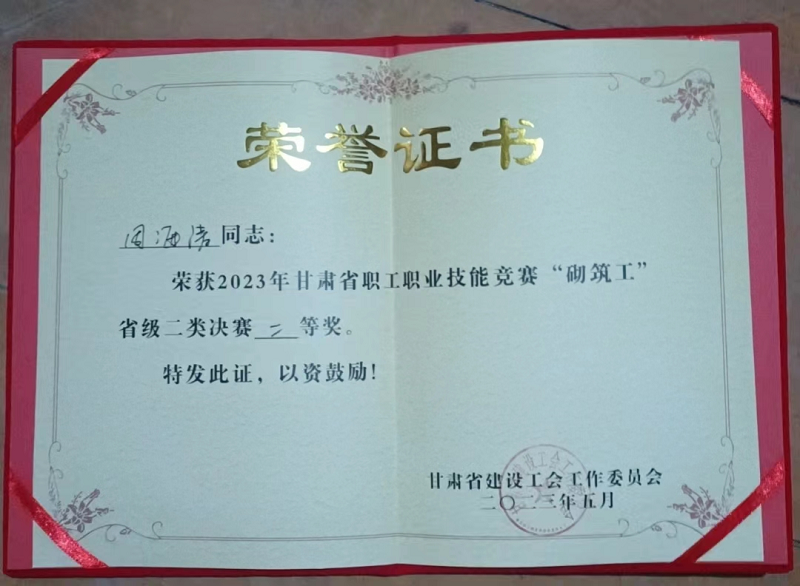 荣誉证书
周海涛同志：
荣获2023年甘肃省职工职业技能竞赛“砌筑工”
省级二类决赛二等奖。
特发此证，以资鼓励！
甘肃省建设工会工作委员会
二〇二三年五月